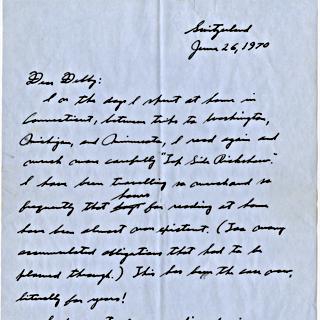 Switzerland
June 26, 1970
Dear Debby:
I on the days I spent at home in
Connecticut, between trips to Washington,
Michigan, and Minnesota, I read again and
much more carefully "Top Side Rickshaw."
I have been travelling so much and so
frequently that hours for reading at home
have been almost non existent. (Too many
accumulated obligations that had to be
plowed through.) This has been the case now,
literally for years!